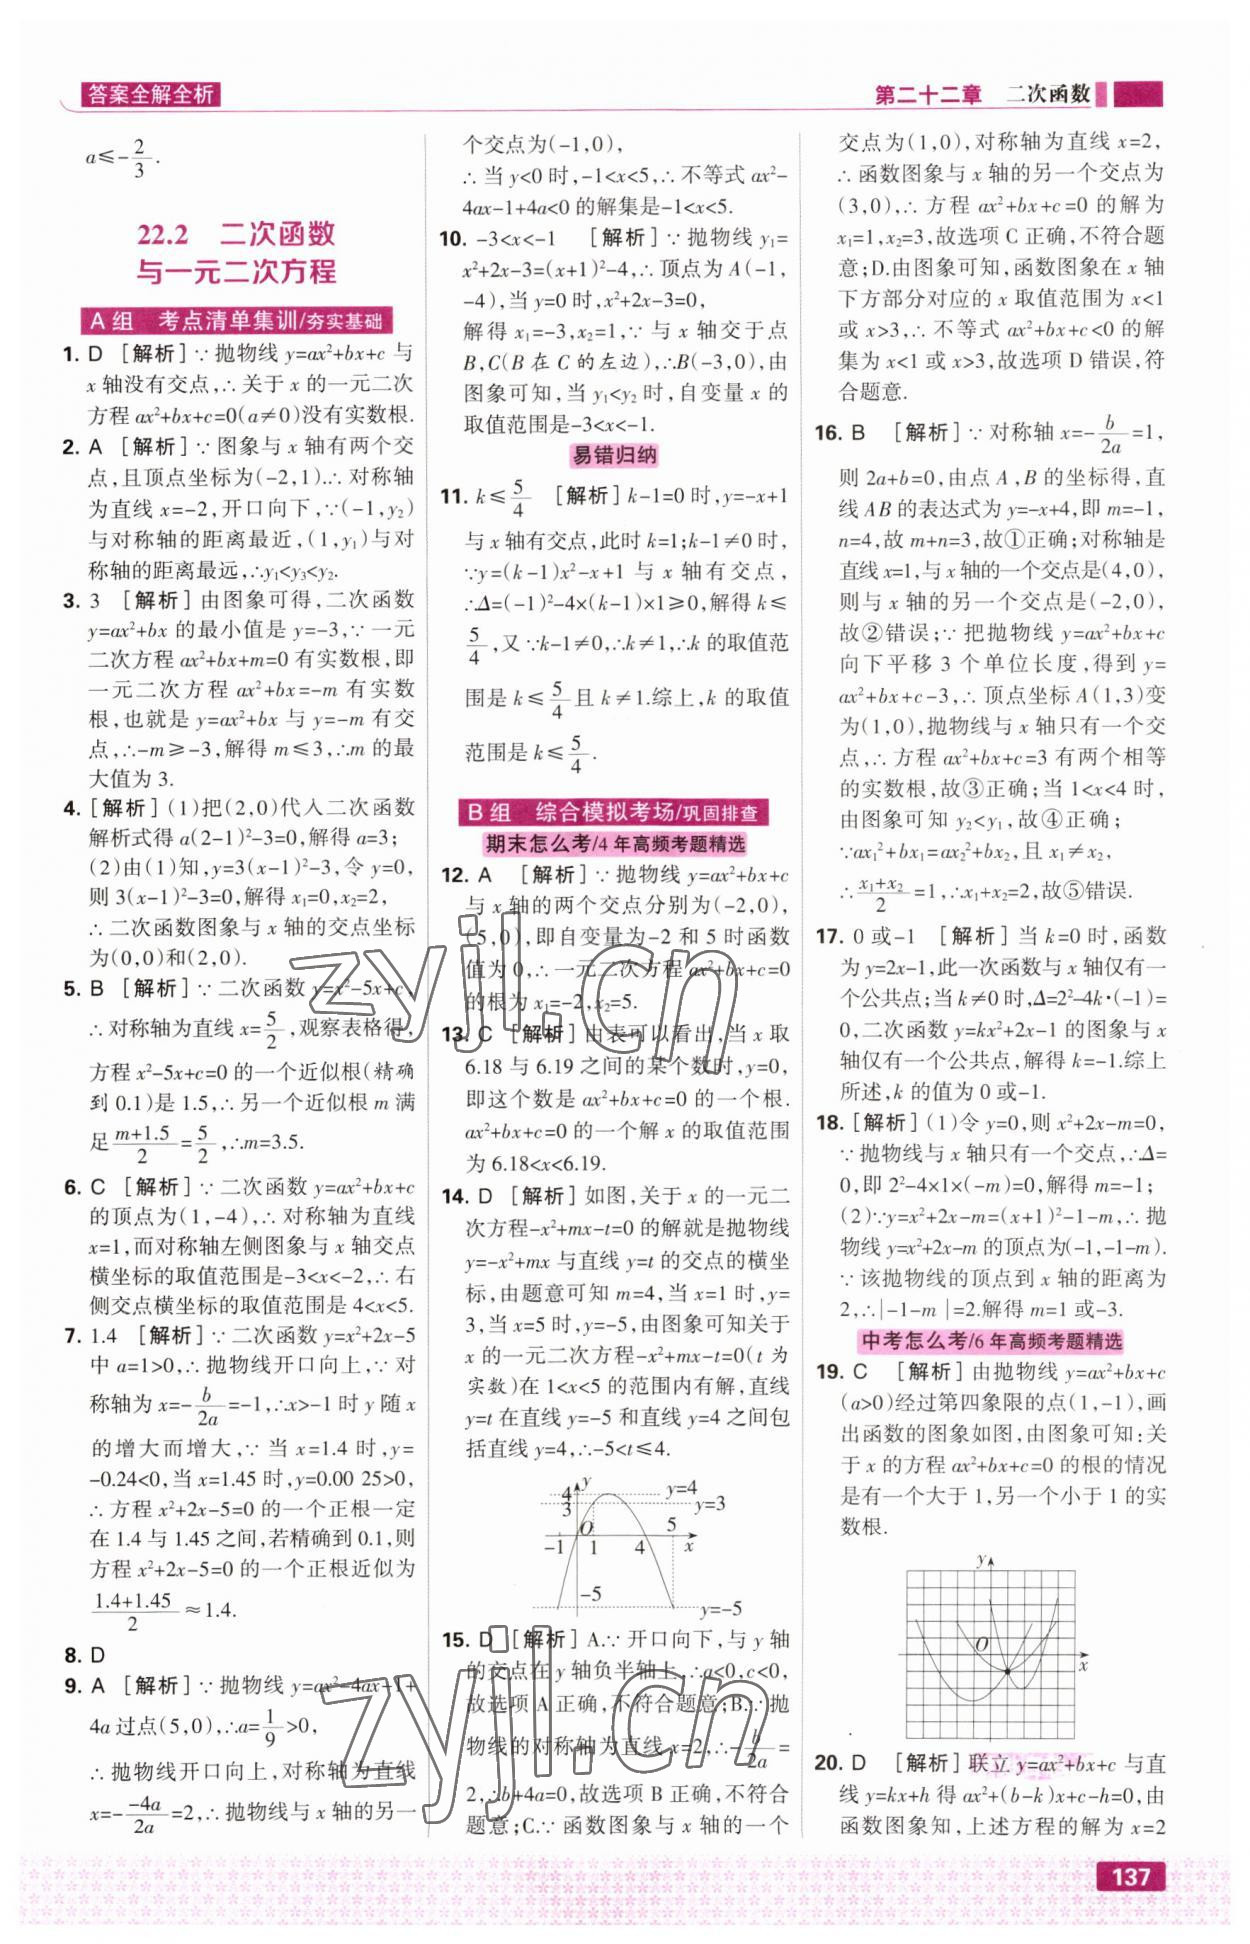 答案全解全析
第二十二章 二次函数
a≤-2/3.
22.2 二次函数
与一元二次方程
A组 考点清单集训/夯实基础
1. D [解析]∵抛物线 y=ax²+bx+c 与
x 轴没有交点,∴关于 x 的一元二次
方程 ax²+bx+c=0(a≠0)没有实数根.
2. A [解析]∵图象与 x 轴有两个交
点,且顶点坐标为(-2,1).∴对称轴
为直线 x=-2,开口向下,∵(-1,y₂)
与对称轴的距离最近,(1,y₁)与对
称轴的距离最远,∴y₁<y₃<y₂.
3. 3 [解析]由图象可得,二次函数
y=ax²+bx 的最小值是 y=-3,∵一元
二次方程 ax²+bx+m=0 有实数根,即
一元二次方程 ax²+bx=-m 有实数
根,也就是 y=ax²+bx 与 y=-m 有交
点,∴-m≥-3,解得 m≤3,∴m 的最
大值为 3.
4. [解析](1)把(2,0)代入二次函数
解析式得 a(2-1)²-3=0,解得 a=3;
(2)由(1)知,y=3(x-1)²-3,令 y=0,
则 3(x-1)²-3=0,解得 x₁=0,x₂=2,
∴二次函数图象与 x 轴的交点坐标
为(0,0)和(2,0).
5. B [解析]∵二次函数 y=x²-5x+c,
∴对称轴为直线 x=5/2,观察表格得,
方程 x²-5x+c=0 的一个近似根(精确
到 0.1)是 1.5,∴另一个近似根 m 满
足(m+1.5)/2=5/2,∴m=3.5.
6. C [解析]∵二次函数 y=ax²+bx+c
的顶点为(1,-4),∴对称轴为直线
x=1,而对称轴左侧图象与 x 轴交点
横坐标的取值范围是-3<x<-2,∴右
侧交点横坐标的取值范围是 4<x<5.
7. 1.4 [解析]∵二次函数 y=x²+2x-5
中 a=1>0,∴抛物线开口向上,∵对
称轴为 x=-b/2a=-1,∴x>-1 时 y 随 x
的增大而增大,∵当 x=1.4 时,y=
-0.24<0,当 x=1.45 时,y=0.00 25>0,
∴方程 x²+2x-5=0 的一个正根一定
在 1.4 与 1.45 之间,若精确到 0.1,则
方程 x²+2x-5=0 的一个正根近似为
(1.4+1.45)/2≈1.4.
8. D
9. A [解析]∵抛物线 y=ax²-4ax-1+
4a 过点(5,0),∴a=1/9>0,
∴抛物线开口向上,对称轴为直线
x=-(-4a)/2a=2,∴抛物线与 x 轴的另一
个交点为(-1,0),
∴当 y<0 时,-1<x<5,∴不等式 ax²-
4ax-1+4a<0 的解集是-1<x<5.
10. -3<x<-1 [解析]∵抛物线 y₁=
x²+2x-3=(x+1)²-4,∴顶点为 A(-1,
-4),当 y=0 时,x²+2x-3=0,
解得 x₁=-3,x₂=1,∵与 x 轴交于点
B,C(B 在 C 的左边),∴B(-3,0),由
图象可知,当 y₁<y₂ 时,自变量 x 的
取值范围是-3<x<-1.
易错归纳
11. k≤5/4 [解析]k-1=0 时,y=-x+1
与 x 轴有交点,此时 k=1;k-1≠0 时,
∵y=(k-1)x²-x+1 与 x 轴有交点,
∴Δ=(-1)²-4×(k-1)×1≥0,解得 k≤
5/4,又∵k-1≠0,∴k≠1,∴k 的取值范
围是 k≤5/4且 k≠1.综上,k 的取值
范围是 k≤5/4.
B组 综合模拟考场/巩固排查
期末怎么考/4 年高频考题精选
12. A [解析]∵抛物线 y=ax²+bx+c
与 x 轴的两个交点分别为(-2,0),
(5,0),即自变量为-2 和 5 时函数
值为 0,∴一元二次方程 ax²+bx+c=0
的根为 x₁=-2,x₂=5.
13. C [解析]由表可以看出,当 x 取
6.18 与 6.19 之间的某个数时,y=0,
即这个数是 ax²+bx+c=0 的一个根.
ax²+bx+c=0 的一个解 x 的取值范围
为 6.18<x<6.19.
14. D [解析]如图,关于 x 的一元二
次方程-x²+mx-t=0 的解就是抛物线
y=-x²+mx 与直线 y=t 的交点的横坐
标,由题意可知 m=4,当 x=1 时,y=
3,当 x=5 时,y=-5,由图象可知关于
x 的一元二次方程-x²+mx-t=0(t 为
实数)在 1<x<5 的范围内有解,直线
y=t 在直线 y=-5 和直线 y=4 之间包
括直线 y=4,∴-5<t≤4.
y
4
3
y=4
y=3
O
-1 1 4 5 x
-5
y=-5
15. D [解析]A.∵开口向下,与 y 轴
的交点在 y 轴负半轴上,∴a<0,c<0,
故选项 A 正确,不符合题意;B.∵抛
物线的对称轴为直线 x=2,∴-b/2a=
2,∴b+4a=0,故选项 B 正确,不符合
题意;C.∵函数图象与 x 轴的一个
交点为(1,0),对称轴为直线 x=2,
∴函数图象与 x 轴的另一个交点为
(3,0),∴方程 ax²+bx+c=0 的解为
x₁=1,x₂=3,故选项 C 正确,不符合题
意;D.由图象可知,函数图象在 x 轴
下方部分对应的 x 取值范围为 x<1
或 x>3,∴不等式 ax²+bx+c<0 的解
集为 x<1 或 x>3,故选项 D 错误,符
合题意.
16. B [解析]∵对称轴 x=-b/2a=1,
则 2a+b=0,由点 A,B 的坐标得,直
线 AB 的表达式为 y=-x+4,即 m=-1,
n=4,故 m+n=3,故①正确;对称轴是
直线 x=1,与 x 轴的一个交点是(4,0),
则与 x 轴的另一个交点是(-2,0),
故②错误;∵把抛物线 y=ax²+bx+c
向下平移 3 个单位长度,得到 y=
ax²+bx+c-3,∴顶点坐标 A(1,3)变
为(1,0),抛物线与 x 轴只有一个交
点,∴方程 ax²+bx+c=3 有两个相等
的实数根,故③正确;当 1<x<4 时,
由图象可知 y₂<y₁,故④正确;
∵ax₁²+bx₁=ax₂²+bx₂,且 x₁≠x₂,
∴(x₁+x₂)/2=1,∴x₁+x₂=2,故⑤错误.
17. 0 或-1 [解析]当 k=0 时,函数
为 y=2x-1,此一次函数与 x 轴仅有一
个公共点;当 k≠0 时,Δ=2²-4k·(-1)=
0,二次函数 y=kx²+2x-1 的图象与 x
轴仅有一个公共点,解得 k=-1.综上
所述,k 的值为 0 或-1.
18. [解析](1)令 y=0,则 x²+2x-m=0,
∵抛物线与 x 轴只有一个交点,∴Δ=
0,即 2²-4×1×(-m)=0,解得 m=-1;
(2)∵y=x²+2x-m=(x+1)²-1-m,∴抛
物线 y=x²+2x-m 的顶点为(-1,-1-m).
∵该抛物线的顶点到 x 轴的距离为
2,∴|-1-m|=2.解得 m=1 或-3.
中考怎么考/6 年高频考题精选
19. C [解析]由抛物线 y=ax²+bx+c
(a>0)经过第四象限的点(1,-1),画
出函数的图象如图,由图象可知:关
于 x 的方程 ax²+bx+c=0 的根的情况
是有一个大于 1,另一个小于 1 的实
数根.
y
O
x
20. D [解析]联立 y=ax²+bx+c 与直
线 y=kx+h 得 ax²+(b-k)x+c-h=0,由
函数图象知,上述方程的解为 x=2
137
zyjl.cn
zyjl.cn